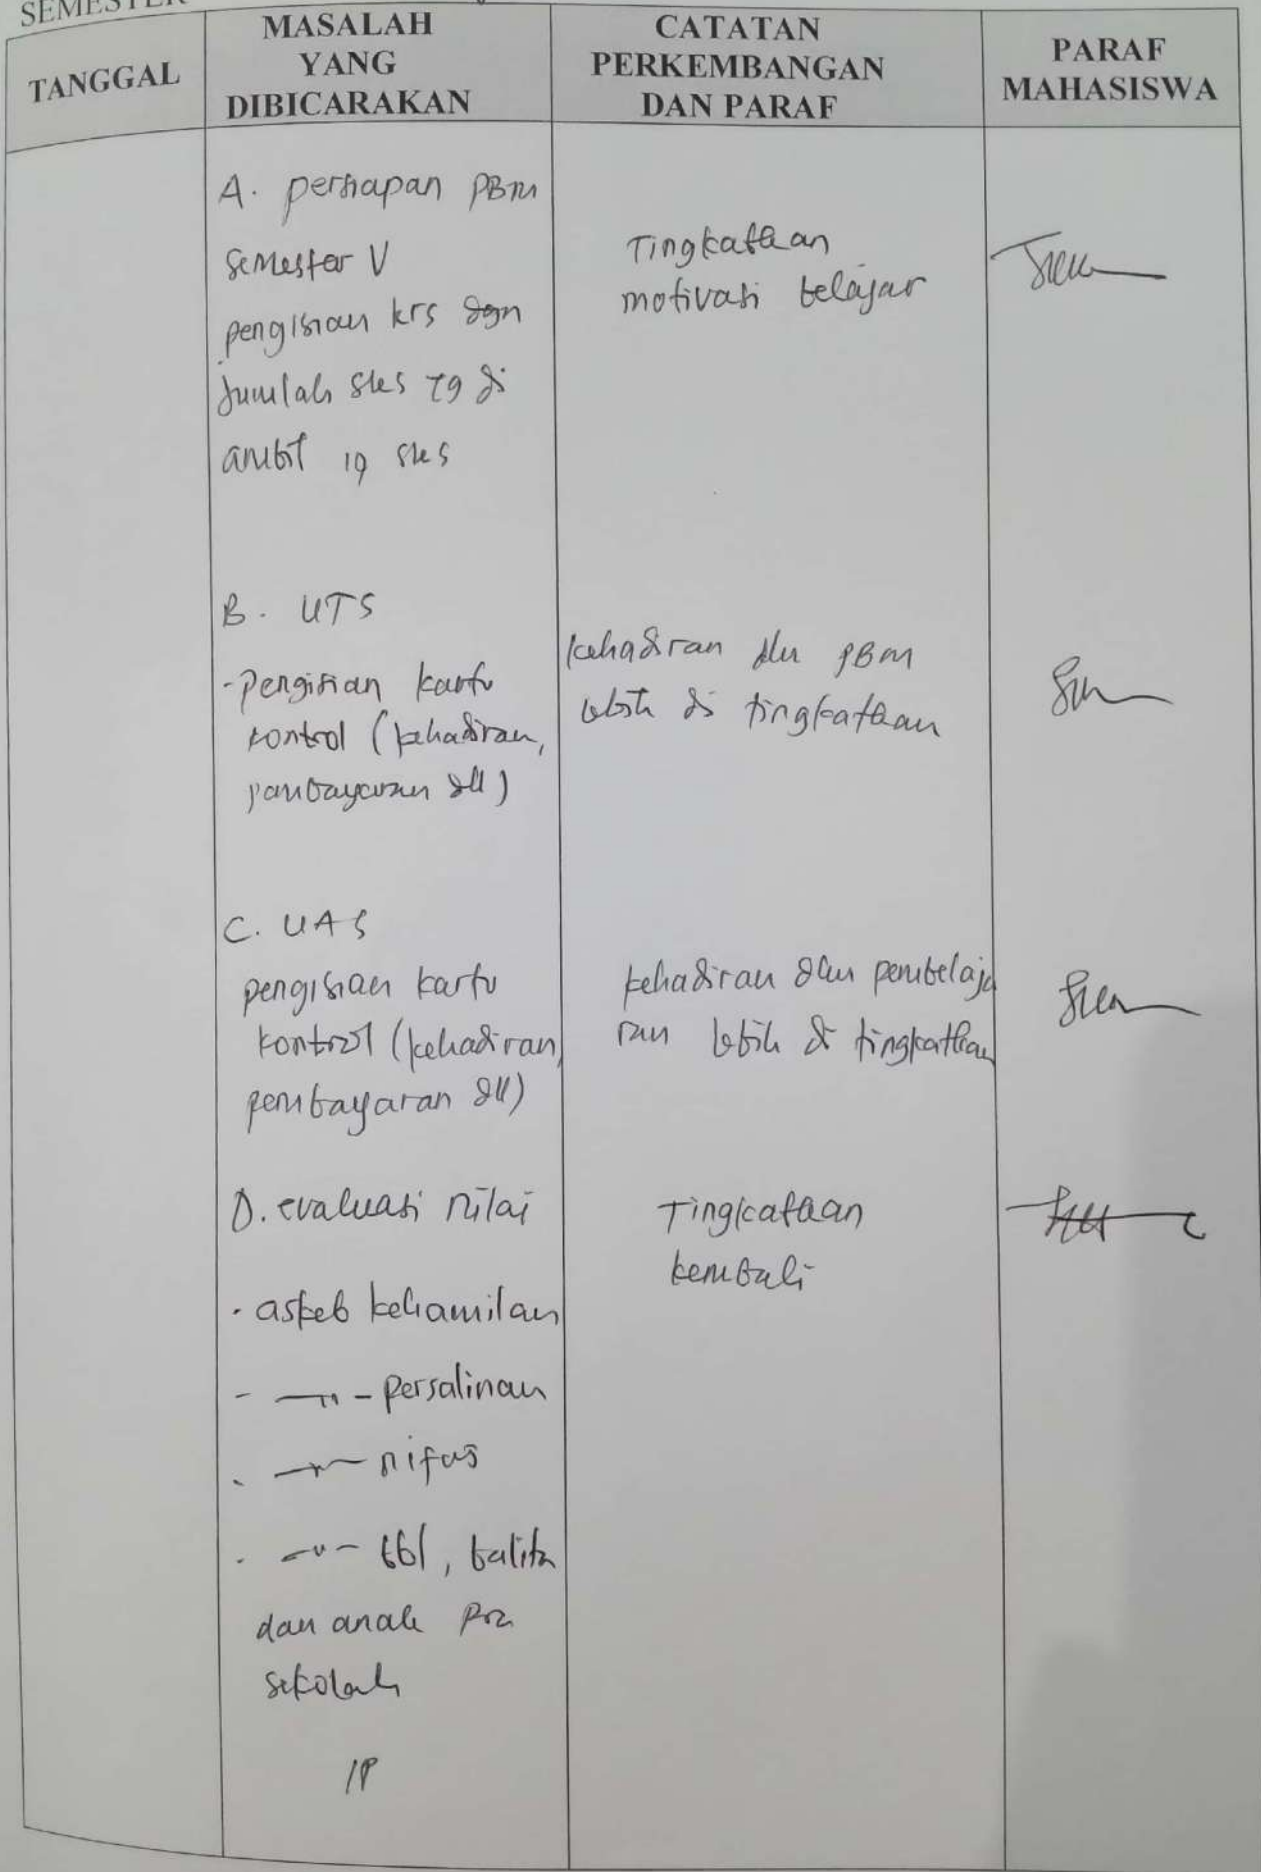 SEMESTER
TANGGAL
MASALAH
YANG
DIBICARAKAN
CATATAN
PERKEMBANGAN
DAN PARAF
PARAF
MAHASISWA
A. persiapan PBM
semester V
pengisian krs dgn
jumlah sks yg di
ambil 19 sks
Tingkatkan
motivasi belajar
B. UTS
- pengisian kartu
kontrol (kehadiran,
pembayaran dll)
kehadiran dlm PBM
lebih di tingkatkan
C. UAS
pengisian kartu
kontrol (kehadiran,
pembayaran dll)
kehadiran dlm pembelaja
ran lebih di tingkatkan
D. evaluasi nilai
- askeb kehamilan
- —"— persalinan
- —"— nifas
- —"— bbl, balita
dan anak pra
sekolah
IP
Tingkatkan
kembali